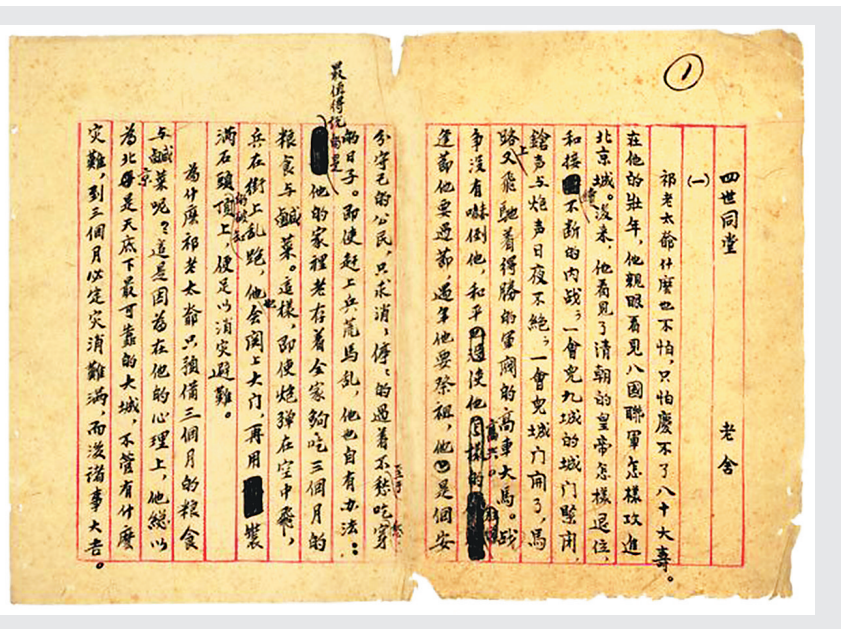 ①
四世同堂 老舍
(一)
祁老太爺什麼也不怕，只怕慶不了八十大壽。
在他的壯年，他親眼看見八國聯軍怎樣攻進
北京城。後来，他看見了清朝的皇帝怎樣退位，
和接續不断的内战；一會兒九城的城门緊闭，
鎗声与炮声日夜不絕；一會兒城门開了，馬
路上又飛馳着得勝的軍閥的高車大馬。战
争沒有嚇倒他，和平使他高兴。
逢節他要過節，過年他要祭祖，他是個安
分守己的公民，只求消消停停的過着不至于愁吃穿
的日子。即使赶上兵荒馬乱，他也自有办法：
最值得说的是他的家裡老存着全家夠吃三個月的
粮食与鹹菜。這樣，即使炮弹在空中飛，
兵在街上乱跑，他也会関上大门，再用装
滿石頭的破缸頂上，便足以消灾避難。
為什麼祁老太爺只預備三個月的粮食
与鹹菜呢？這是因為在他的心理上，他總以
為北京是天底下最可靠的大城，不管有什麼
灾難，到三個月必定灾消難滿，而後諸事大吉。